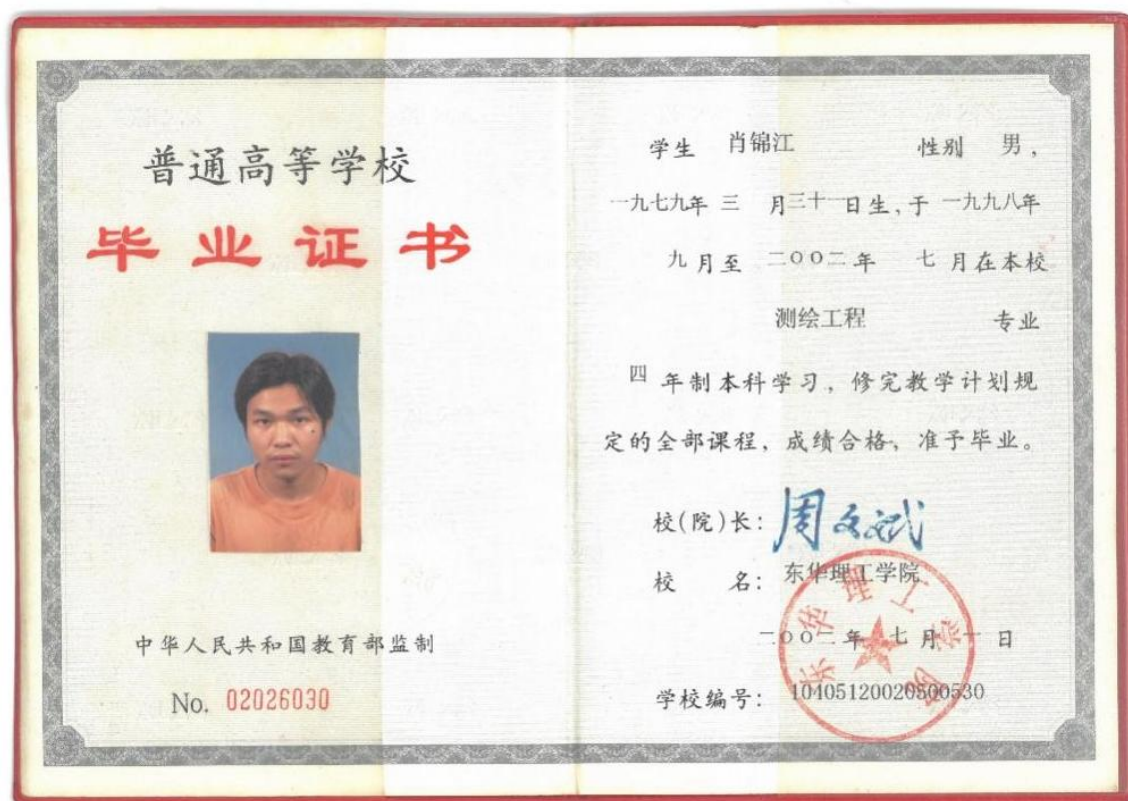 普通高等学校
毕业证书
中华人民共和国教育部监制
No. 02026030
学生 肖锦江 性别 男,
一九七九年 三 月三十一日生,于 一九九八年
九月至 二○○二年 七月在本校
测绘工程 专业
四 年制本科学习，修完教学计划规
定的全部课程，成绩合格，准予毕业。
校(院)长: 周文斌
校 名: 东华理工学院
二○○二年 七月 一 日
学校编号: 10405120020500530
东华理工学院